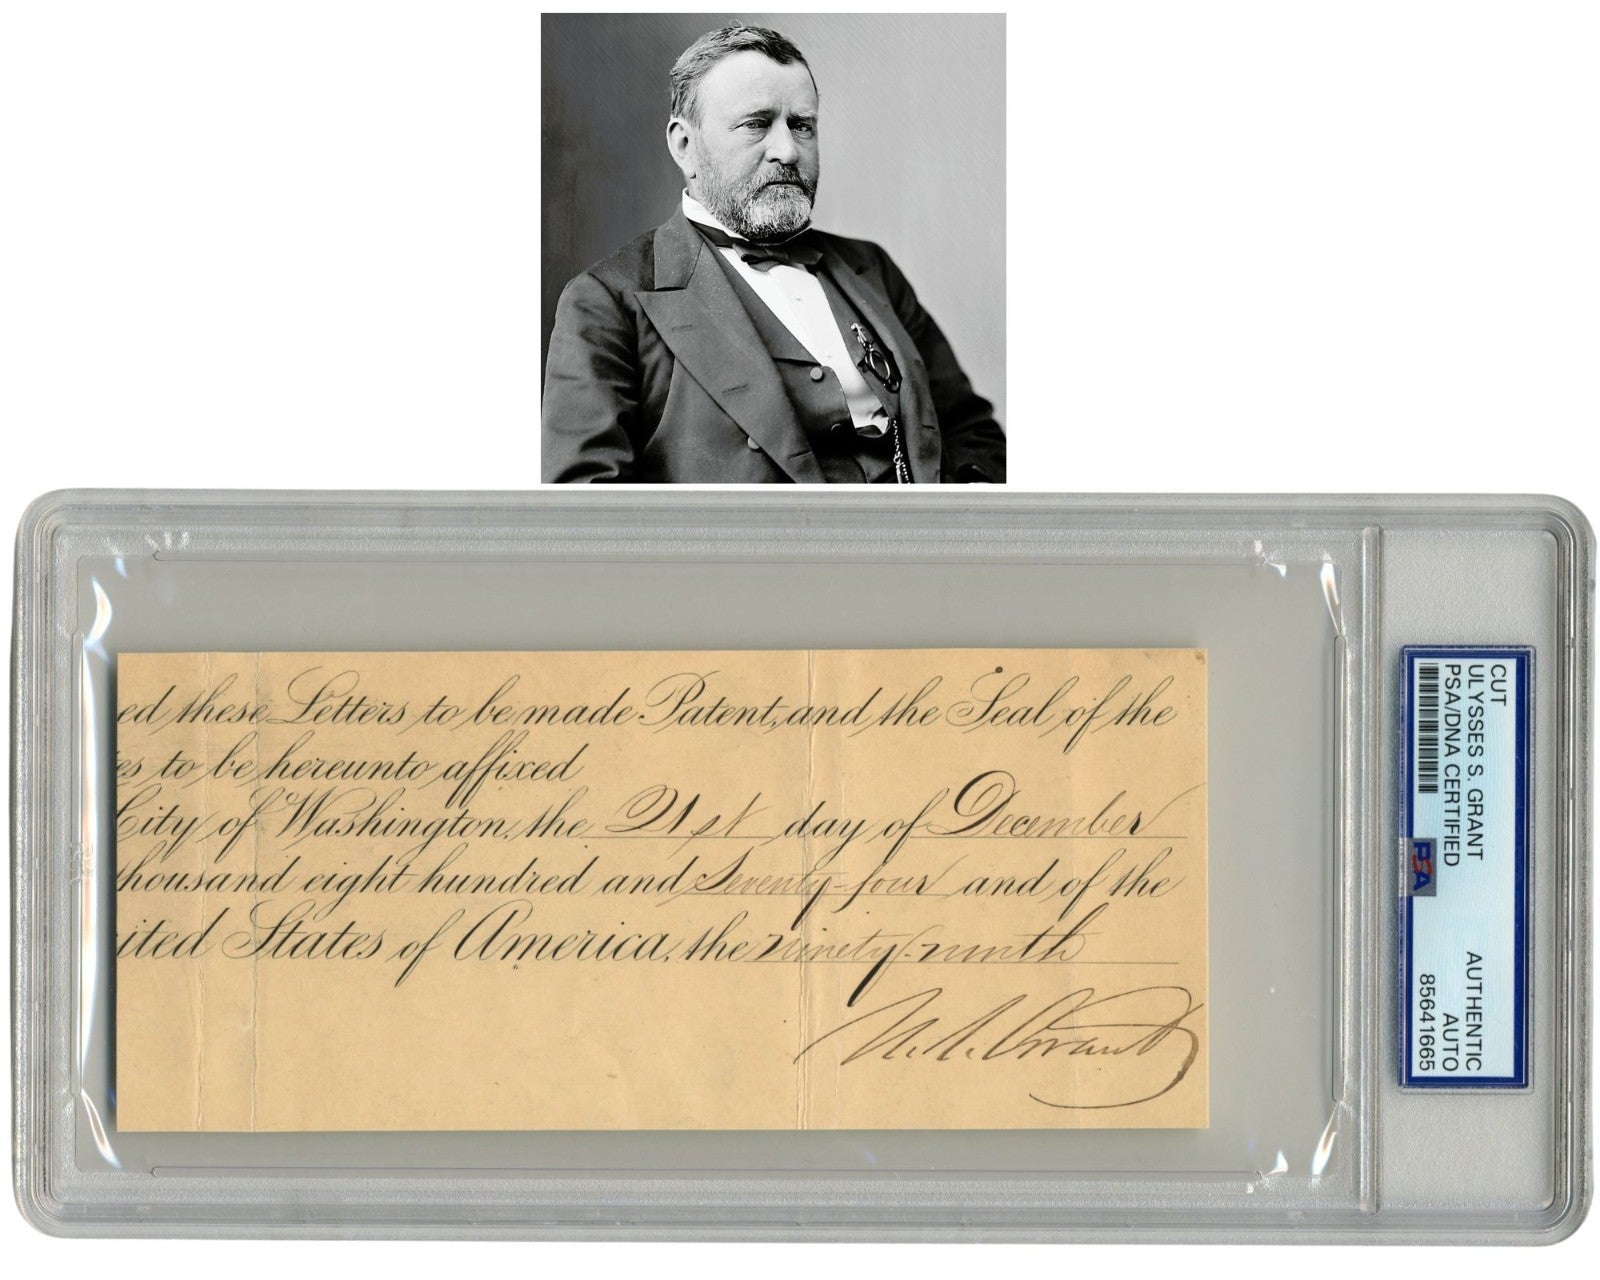 ed these Letters to be made Patent, and the Seal of the
es to be hereunto affixed
City of Washington, the 21st day of December
thousand eight hundred and Seventy-four and of the
ited States of America, the ninety-ninth
U. S. Grant
CUT
ULYSSES S. GRANT
PSA/DNA CERTIFIED
PSA
AUTHENTIC
AUTO
85641665